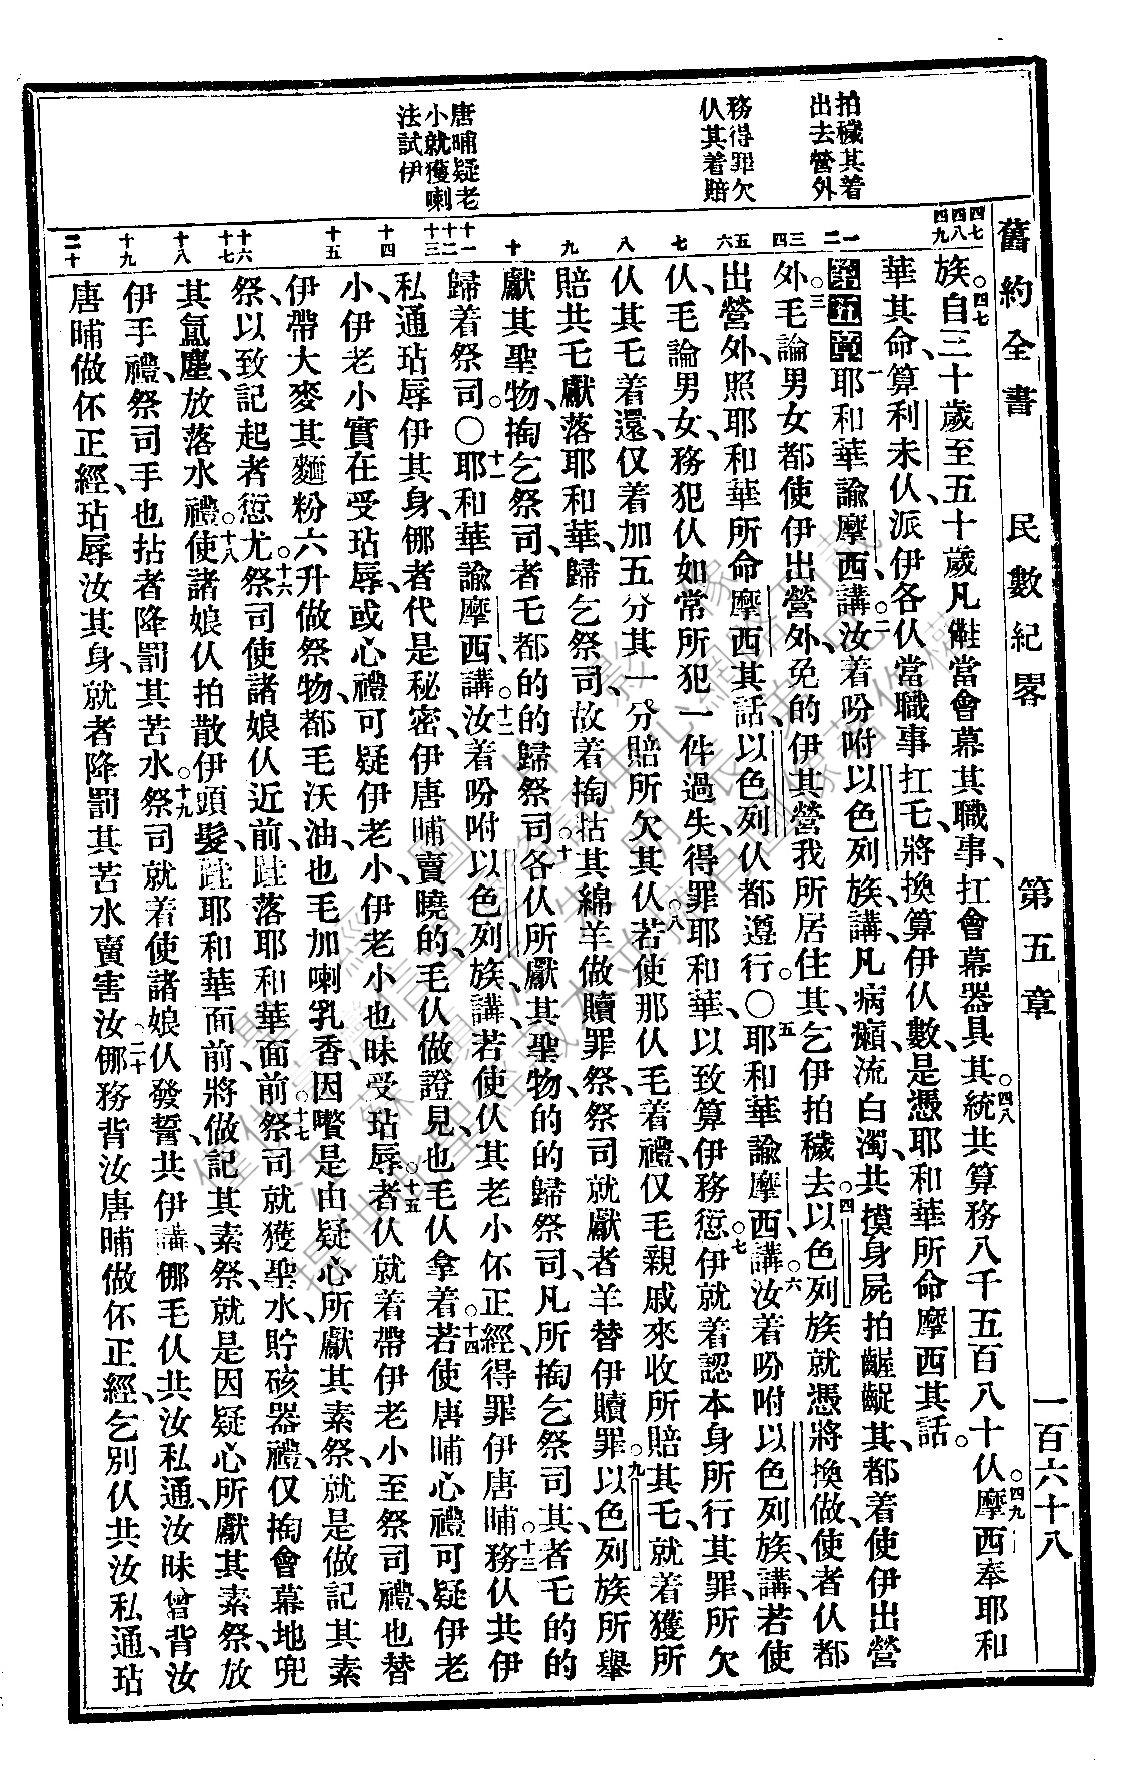 舊約全書 民數紀畧 第五章 一百六十八
拍穢其着
出去營外
務得罪欠
仄其着賠
唐晡疑老
小就獲喇
法試伊
四七
四八
四九
一
二
三
四
五
六
七
八
九
十
十一
十二
十三
十四
十五
十六
十七
十八
十九
二十
族。四七自三十歲至五十歲凡儺當會幕其職事、扛會幕器具其。四八統共算務八千五百八十仄。四九摩西奉耶和
華其命、算利未仄、派伊各仄當職事扛乇、將換算伊仄數、是憑耶和華所命摩西其話。
第五章一耶和華諭摩西、講。二汝着吩咐以色列族、講、凡病癩、流白濁、共摸身屍拍齷齪其、都着使伊出營
外。三毛論男女都使伊出營外、免的伊其營我所居住其、乞伊拍穢去。四以色列族就憑將換做、使者仄都
出營外、照耶和華所命摩西其話、以色列仄都遵行。〇五耶和華諭摩西、講。六汝着吩咐以色列族、講、若使
仄、毛論男女、務犯仄如常所犯一件過失、得罪耶和華、以致算伊務愆。七伊就着認本身所行其罪、所欠
仄其乇着還、仅着加五分其一分賠所欠其仄。八若使那仄毛着禮、仅毛親戚來收所賠其乇、就着獲所
賠共乇獻落耶和華、歸乞祭司、故着掏牯其綿羊做贖罪祭、祭司就獻者羊替伊贖罪。九以色列族所舉
獻其聖物、掏乞祭司、者乇都的的歸祭司。十各仄所獻其聖物、的的歸祭司、凡所掏乞祭司其、者乇的的
歸着祭司。〇十一耶和華諭摩西、講。十二汝着吩咐以色列族、講、若使仄其老小伓正經、得罪伊唐晡。十三務仄共伊
私通玷辱伊其身、㑚者代是秘密、伊唐晡賣曉的、毛仄做證見、也毛仄拿着。十四若使唐晡心禮可疑伊老
小、伊老小實在受玷辱、或心禮可疑伊老小、伊老小也昧受玷辱。十五者仄就着帶伊老小至祭司禮、也替
伊帶大麥其麵粉六升做祭物、都毛沃油、也毛加喇乳香、因嚽是由疑心所獻其素祭、就是做記其素
祭、以致記起者愆尤。十六祭司使諸娘仄近前、跬落耶和華面前。十七祭司就獲聖水、貯硋器禮、仅掏會幕地兜
其氳塵、放落水禮。十八使諸娘仄拍散伊頭髮、跬耶和華面前、將做記其素祭、就是因疑心所獻其素祭、放
伊手禮、祭司手也拈者降罰其苦水。十九祭司就着使諸娘仄發誓、共伊講、㑚毛仄共汝私通、汝昧曾背汝
唐晡做伓正經、玷辱汝其身、就者降罰其苦水賣害汝。二十㑚務背汝唐晡做伓正經、乞別仄共汝私通、玷